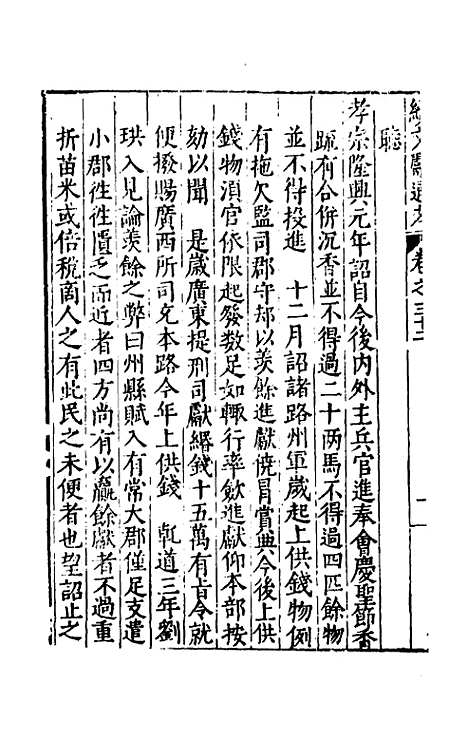 續文獻通考 卷之三十二
聽
孝宗隆興元年詔自今後內外主兵官進奉會慶聖節香
疏有合併沉香並不得過二十两馬不得過四匹餘物
並不得投進 十二月詔諸路州軍歲起上供錢物例
有拖欠監司郡守却以羡餘進獻僥冒賞典今後上供
錢物湏官依限起發数足如輙行率歛進獻仰本部按
劾以聞 是歲廣東提刑司獻緡錢十五萬有旨令就
便撥賜廣西所司充本路今年上供錢 乹道三年劉
珙入見論羡餘之弊曰州縣賦入有常大郡僅足支遣
小郡徃徃匱乏而近者四方尚有以羸餘獻者不過重
折苗米或倍税商人之有此民之未便者也望詔止之